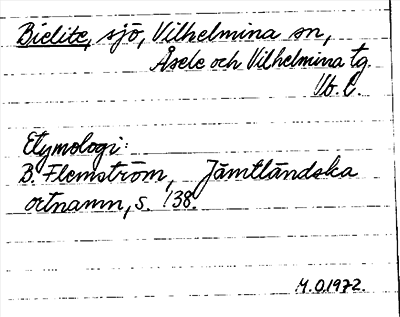 Bielite, sjö, Vilhelmina sn,
Åsele och Vilhelmina tg.
Vb. l.
Etymologi:
B. Flemström, Jämtländska
ortnamn, s. 138.
M.O.1972.